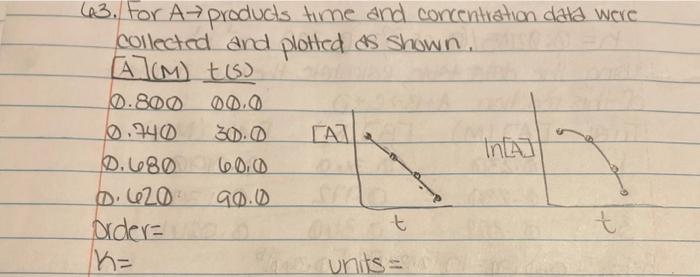 63. For A→products time and concentration data were
collected and plotted as shown.
[A](M) t(s)
0.800 00.0
0.740 30.0
0.680 60.0
0.620 90.0
[A]
t
ln[A]
t
order=
K= units=